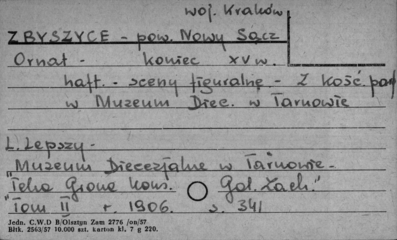 woj. Kraków
ZBYSZYCE - pow. Nowy Sącz
Ornat - koniec XV w.
haft. - sceny figuralne - z kość. par
w Muzeum Diec. w Tarnowie
L. Lepszy -
"Muzeum Diecezjalne w Tarnowie -
"Teka Grona Kons. Gal. Zach."
"Tom II r. 1906. s. 341
Jedn. C.W.D B/Olsztyn Zam 2776 /on/57.
Błtk. 2563/57 10.000 szt. karton kl. 7 g 220.